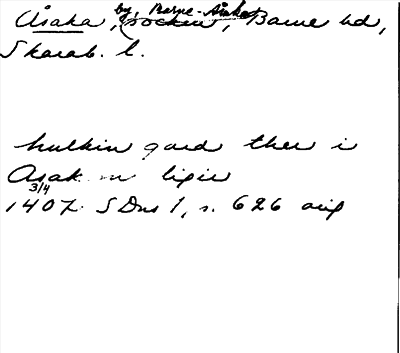 by, Barne-Åsaka
Åsaka, (socken), Barne hd,
Skarab. l.
hulkin gard ther i
Asak .. m ligir
3/4
1407. SDns 1, s. 626 orig